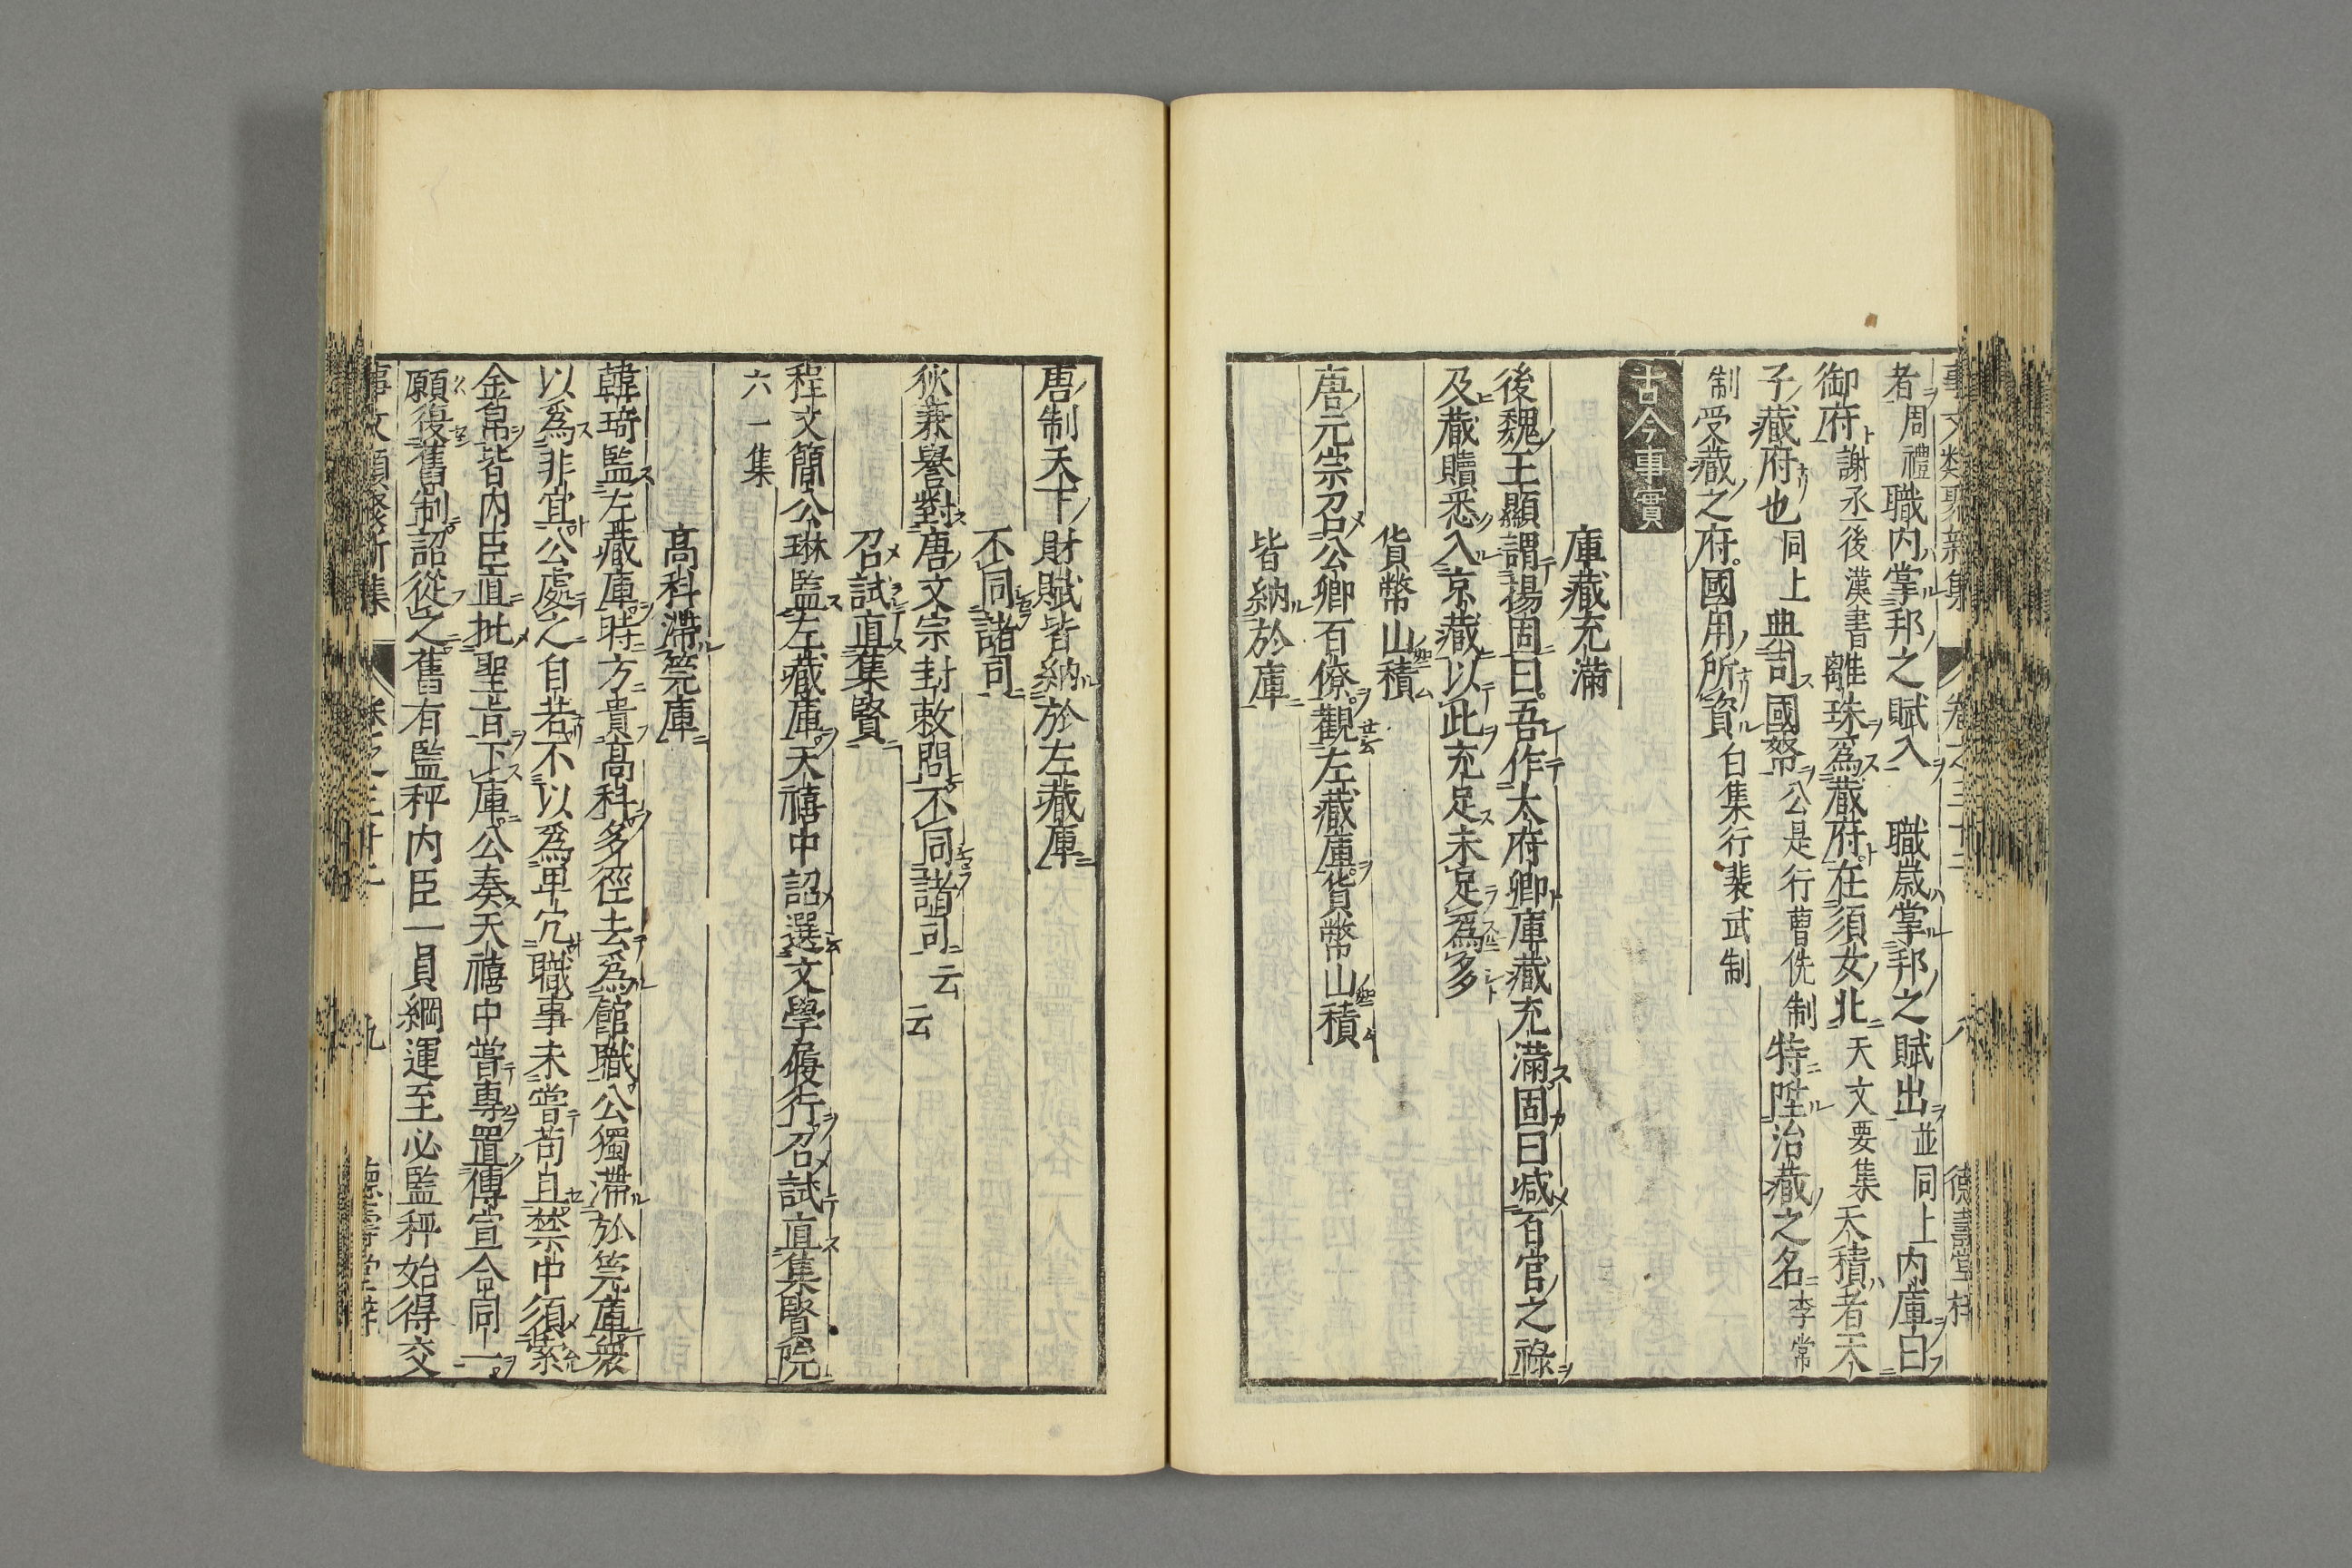 者周禮職内掌邦之賦入 職歲掌邦之賦出並同上内庫曰
御府謝丞後漢書離珠爲藏府在須女北天文要集天積者天
子藏府也同上典司國帑公是行曹侁制特陞治藏之名李常
制受藏之府國用所資白集行裴武制
古今事實
庫藏充滿
後魏王顯謂揚固曰吾作太府卿庫藏充滿固曰减百官之祿
及藏贖悉入京藏以此充足未足爲多
貨幣山積
唐元宗召公卿百僚觀左藏庫貨幣山積
皆納於庫
唐制天下財賦皆納於左藏庫
不同諸司
狄兼謩對唐文宗封敕問不同諸司云云
召試直集賢
程文簡公琳監左藏庫天禧中詔選文學履行召試直集賢院
六一集
高科滯筦庫
韓琦監左藏庫時方貴高科多徑去爲館職公獨滯於筦庫衆
以爲非宜公處之自若不以爲卑冗職事未嘗苟且禁中須索
金帛皆内臣直批聖旨下庫公奏天禧中嘗專置傳宣合同一
願復舊制詔從之舊有監秤内臣一員綱運至必監秤始得交